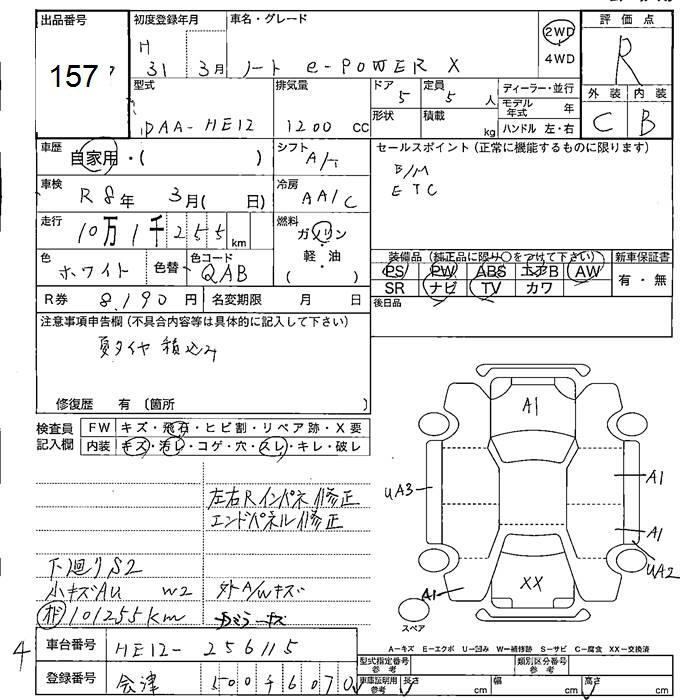 出品番号
157
初度登録年月
H 31 3月
車名・グレード
ノート e-POWER X
2WD
・
4WD
評価点
R
外装 内装
C B
型式
DAA-HE12
排気量
1200 cc
ドア 5
定員 5 人
形状
積載 kg
ディーラー・並行
モデル年式 年
ハンドル 左・右
車歴
自家用・( )
シフト
A/T
セールスポイント (正常に機能するものに限ります)
B/M
ETC
車検
R8年 3月( 日)
冷房
AA/C
走行
10万1千255km
燃料
ガソリン
・
軽・油
( )
色
ホワイト
色替
色コード
QAB
装備品 (純正品に限り○をつけて下さい)
新車保証書
PS PW ABS エアB AW
SR ナビ TV カワ
有・無
R券 8,190円
名変期限 月 日
後日品
注意事項申告欄 (不具合内容等は具体的に記入して下さい)
夏タイヤ積込み
修復歴 有 〔箇所 〕
検査員記入欄
FW キズ・飛石・ヒビ割・リペア跡・X要
内装 キズ・汚レ・コゲ・穴・スレ・キレ・破レ
左右Rインパネ修正
エンドパネル修正
下廻りS2
小キズAU W2
外A/Wキズ
101255km
A1
UA3
A1
A1
UA2
XX
A1
スペア
A-キズ E-エクボ U-凹み W-補修跡 S-サビ C-腐食 XX-交換済
4
車台番号
HE12-256115
登録番号
会津 500 そ 6070
型式指定番号
参考
類別区分番号
参考
車庫証明用
参考
長さ cm
幅 cm
高さ cm